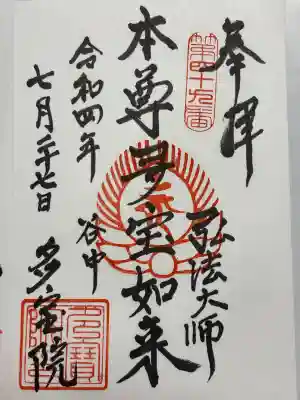 奉拝
第四十九番
弘法大師
本尊多宝如来
谷中
多宝院
令和四年
七月二十七日
多寶院印